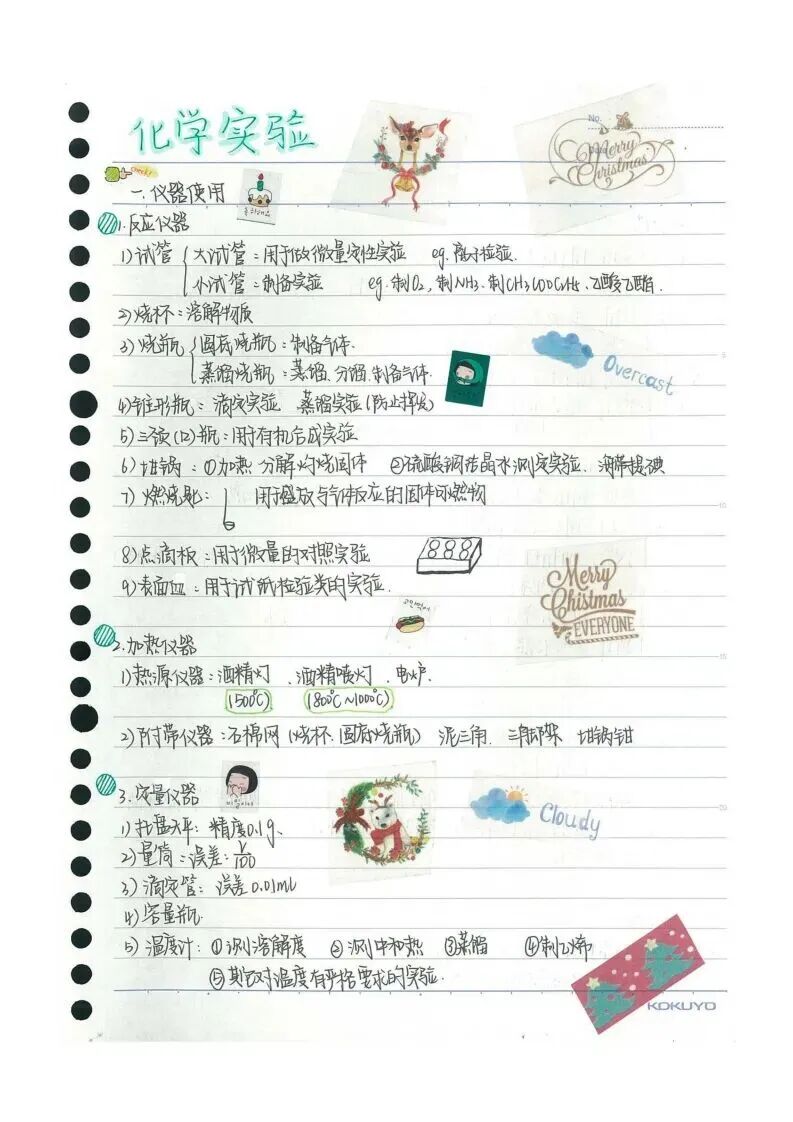 化学实验
No.
Merry
Christmas
check!
一.仪器使用
1.反应仪器
1)试管 大试管:用于做微量定性实验 eg.离子检验.
小试管:制备实验 eg.制O2,制NH3.制CH3COOC2H5、乙酸乙酯.
2)烧杯:溶解物质
3)烧瓶 圆底烧瓶:制备气体.
蒸馏烧瓶:蒸馏、分馏、制备气体.
Overcast
4)锥形瓶:滴定实验 蒸馏实验(防止挥发)
5)三颈(口)瓶:用于有机合成实验
6)坩锅:①加热分解灼烧固体 ②硫酸铜结晶水测定实验、海带提碘
7)燃烧匙: 用于盛放与气体反应的固体可燃物
8)点滴板:用于微量的对照实验
9)表面皿:用于试纸检验类的实验.
Merry
Chistmas
EVERYONE
2.加热仪器
1)热源仪器:酒精灯 、酒精喷灯 、电炉.
(500℃) (800℃~1000℃)
2)附带仪器:石棉网(烧杯.圆底烧瓶) 泥三角、三脚架 坩锅钳
3.定量仪器
1)托盘天平:精度0.1g、
Cloudy
2)量筒:误差:V/100
3)滴定管:误差0.01ml
4)容量瓶.
5)温度计:①测溶解度 ②测中和热 ③蒸馏 ④制乙烯
⑤其它对温度有严格要求的实验.
KOKUYO